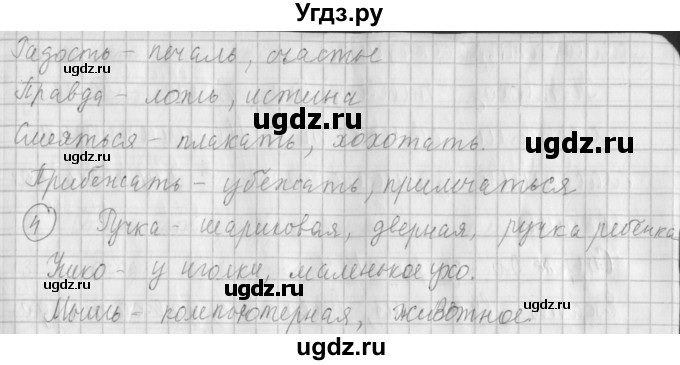 Угдз.ру
Радость – печаль, счастье
Правда – ложь, истина
Смеяться – плакать, хохотать.
Прибежать – убежать, примчаться
4 Ручка – шариковая, дверная, ручка ребёнка
Ушко – у иголки, маленькое ухо.
Мышь – компьютерная, животное.
ugdz.ru
ugdz.ru
ugdz.ru
ugdz.ru
ugdz.ru
ugdz.ru
ugdz.ru
ugdz.ru
ugdz.ru
ugdz.ru